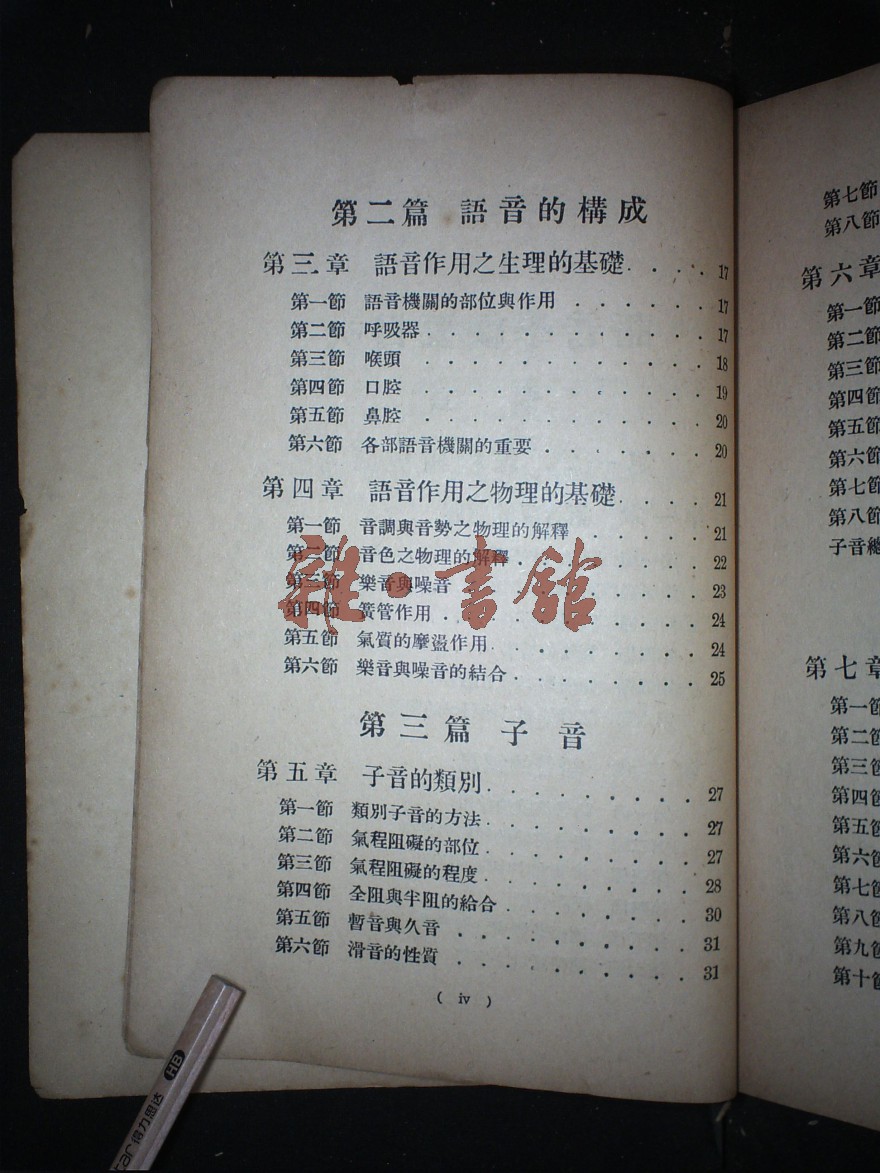 第二篇 語音的構成
第三章 語音作用之生理的基礎. . . . 17
第一節 語音機關的部位與作用 . . . . . . 17
第二節 呼吸器 . . . . . . . . . . . 17
第三節 喉頭 . . . . . . . . . . . 18
第四節 口腔 . . . . . . . . . . . 19
第五節 鼻腔 . . . . . . . . . . . 20
第六節 各部語音機關的重要 . . . . . . . 20
第四章 語音作用之物理的基礎. . . . 21
第一節 音調與音勢之物理的解釋 . . . . . 21
第二節 音色之物理的解釋. . . . . . . . 22
第三節 樂音與噪音 . . . . . . . . . 23
第四節 簧管作用 . . . . . . . . . . 24
第五節 氣質的摩盪作用 . . . . . . . . 24
第六節 樂音與噪音的結合. . . . . . . . 25
第三篇 子音
第五章 子音的類別. . . . . . . . 27
第一節 類別子音的方法. . . . . . . . . 27
第二節 氣程阻礙的部位. . . . . . . . . 27
第三節 氣程阻礙的程度. . . . . . . . . 28
第四節 全阻與半阻的給合. . . . . . . . 30
第五節 暫音與久音 . . . . . . . . . . 31
第六節 滑音的性質 . . . . . . . . . . 31
( iv )
雜·書館
第七節
第八節
第六章
第一節
第二節
第三節
第四節
第五節
第六節
第七節
第八節
子音總
第七章
第一節
第二節
第三節
第四節
第五節
第六節
第七節
第八節
第九節
第十節
HB
得力思达